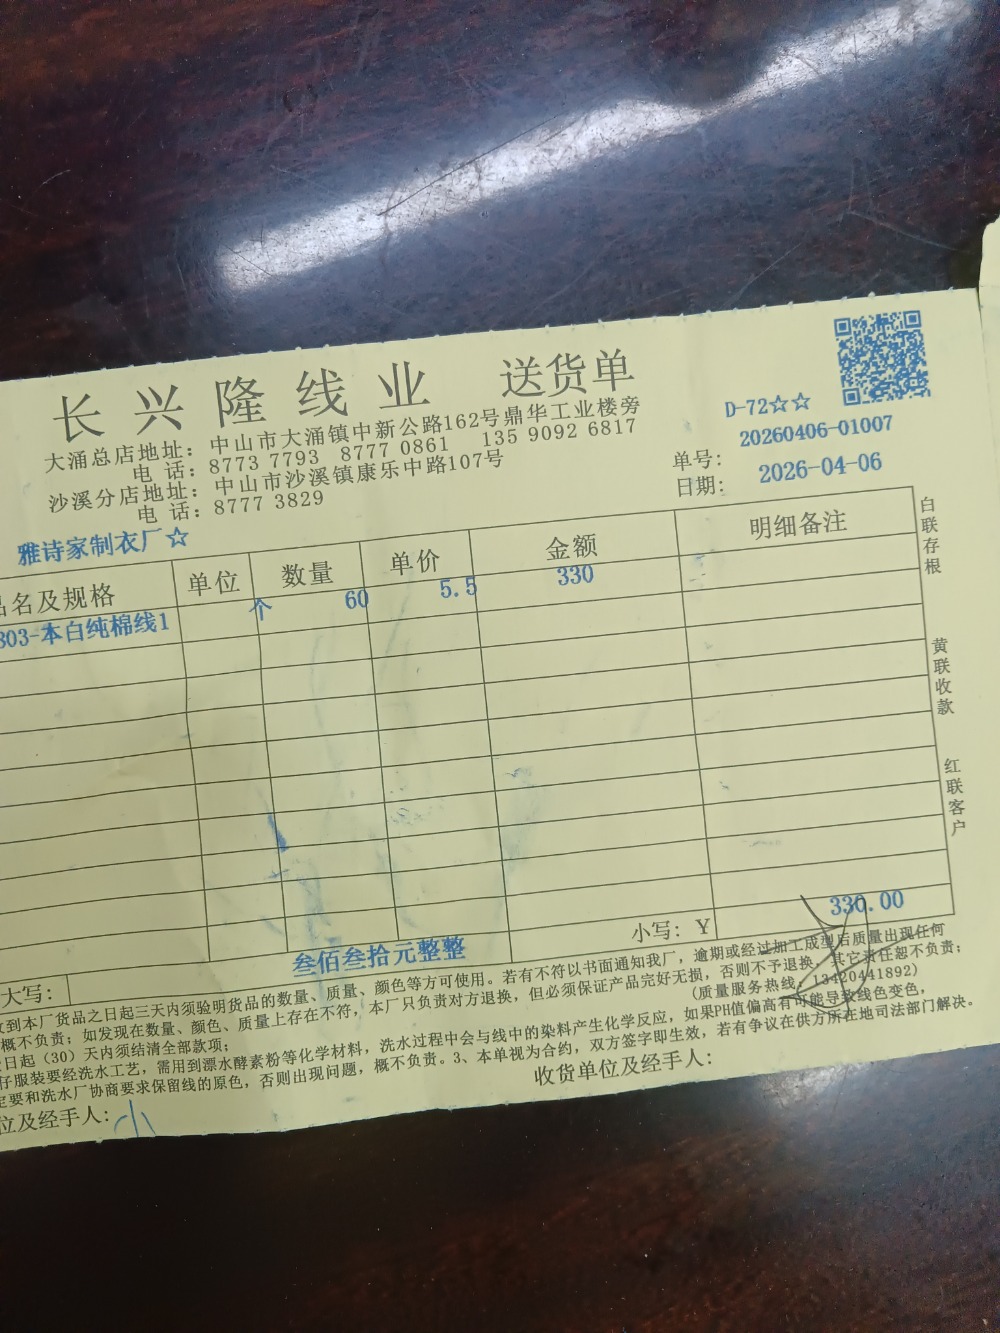 长兴隆线业 送货单
大涌总店地址：中山市大涌镇中新公路162号鼎华工业楼旁
电 话：8773 7793 8777 0861 135 9092 6817
沙溪分店地址：中山市沙溪镇康乐中路107号
电 话：8777 3829
D-72☆☆
单号：20260406-01007
日期：2026-04-06
雅诗家制衣厂☆
品名及规格 单位 数量 单价 金额 明细备注
303-本白纯棉线1 个 60 5.5 330
白联存根
黄联收款
红联客户
大写：叁佰叁拾元整整 小写：Y 330.00
到本厂货品之日起三天内须验明货品的数量、质量、颜色等方可使用。若有不符以书面通知我厂，逾期或经过加工成型后质量出现任何
概不负责；如发现在数量、颜色、质量上存在不符，本厂只负责对方退换，但必须保证产品完好无损，否则不予退换，其它责任恕不负责；
日起（30）天内须结清全部款项； (质量服务热线：13420441892)
仔服装要经洗水工艺，需用到漂水酵素粉等化学材料，洗水过程中会与线中的染料产生化学反应，如果PH值偏高有可能导致线色变色，
定要和洗水厂协商要求保留线的原色，否则出现问题，概不负责。3、本单视为合约，双方签字即生效，若有争议在供方所在地司法部门解决。
位及经手人：小 收货单位及经手人：